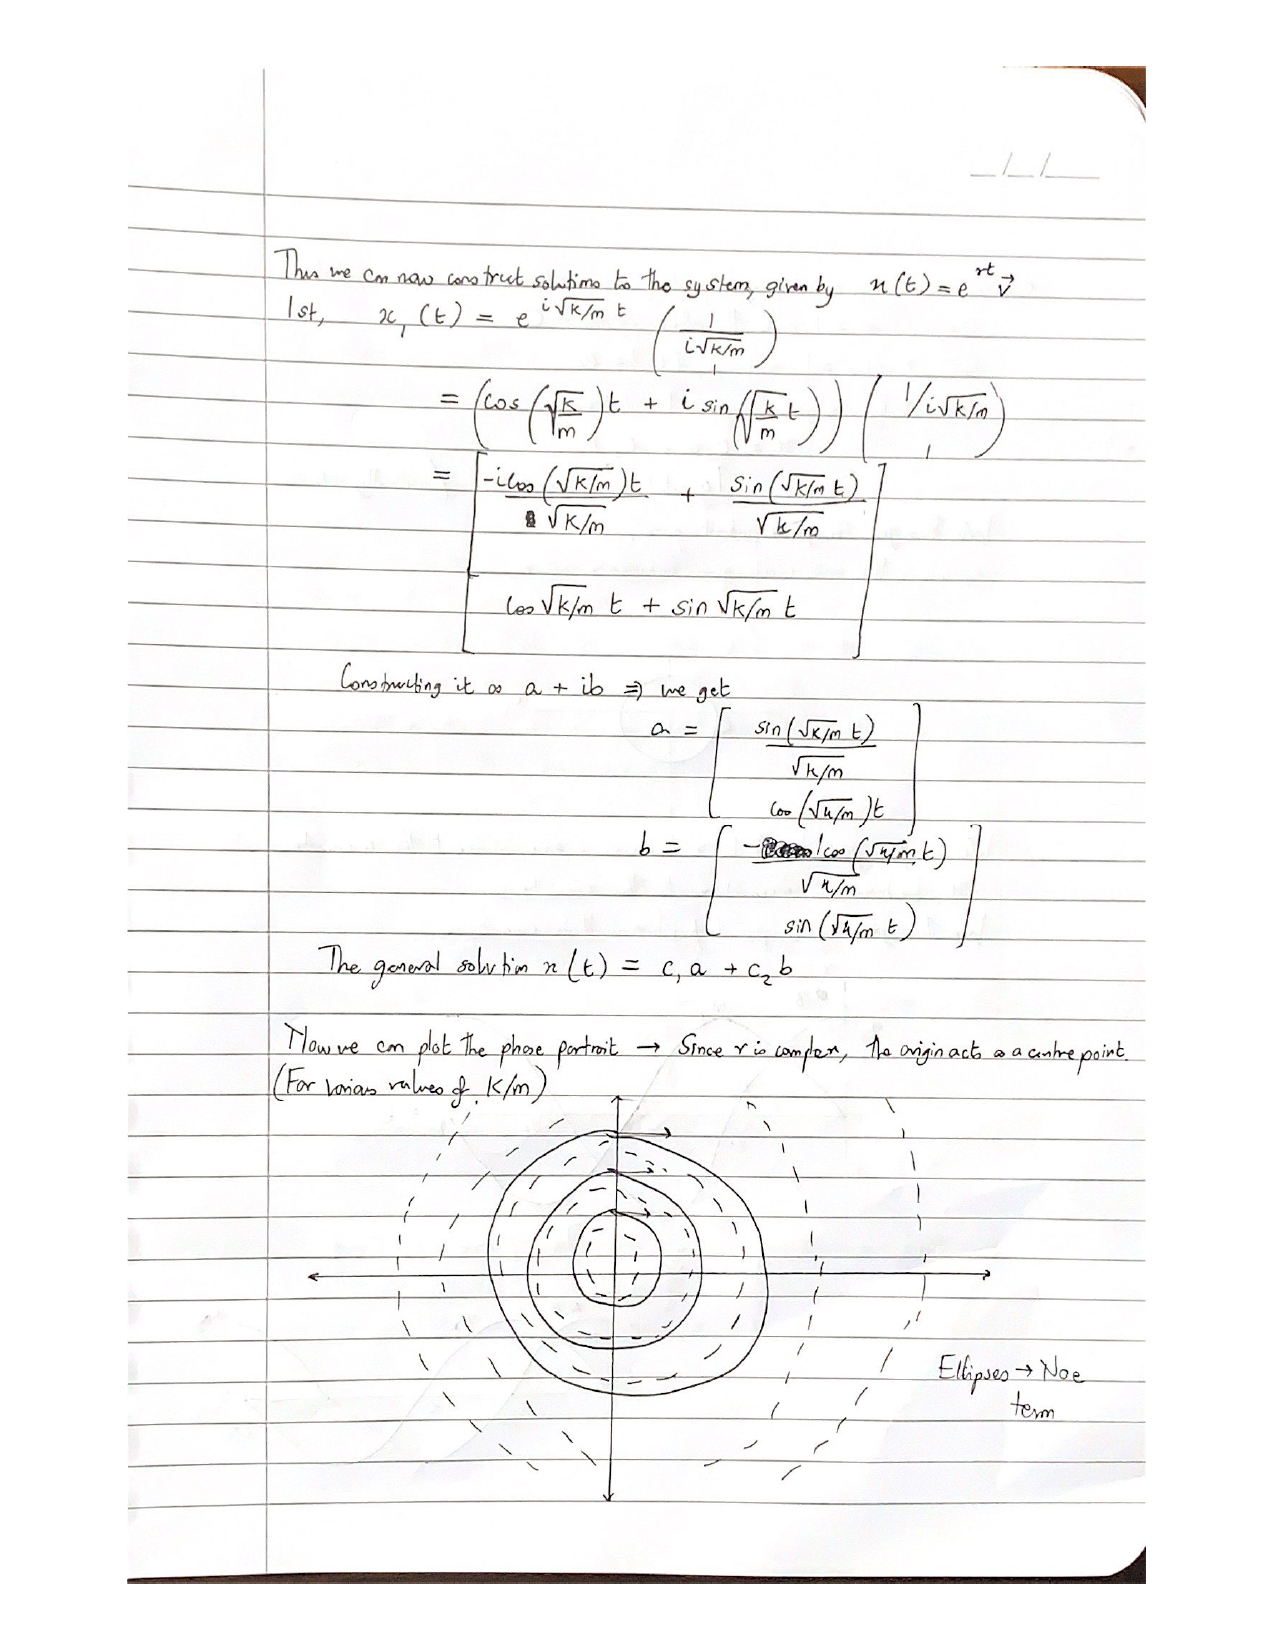 _/_/__
Thus we can now construct solutions to the system, given by x(t) = e^{rt} v⃗
1st, x₁(t) = e^{i√(k/m) t} ( 1/(i√(k/m)) , 1 )
= (cos(√(k/m))t + i sin(√(k/m) t)) ( 1/i√(k/m) , 1 )
= [ -i cos(√(k/m))t / √(k/m) + sin(√(k/m) t) / √(k/m)
cos √(k/m) t + sin √(k/m) t ]
Constructing it as a + ib ⇒ we get
a = [ sin(√(k/m) t) / √(k/m)
cos(√(k/m))t ]
b = [ -1cos(√(k/m) t) / √(k/m)
sin(√(k/m) t) ]
The general solution x(t) = c₁a + c₂b
Now we can plot the phase portrait → Since r is complex, the origin acts as a centre point.
(For various values of k/m)
Ellipses → No e
term